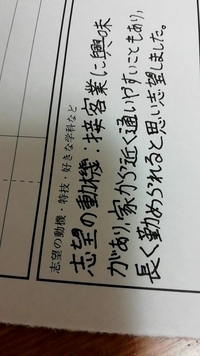 志望の動機・特技・好きな学科など
志望の動機：接客業に興味
があり、家から近く通いやすいこともあり、
長く勤められると思い志望しました。